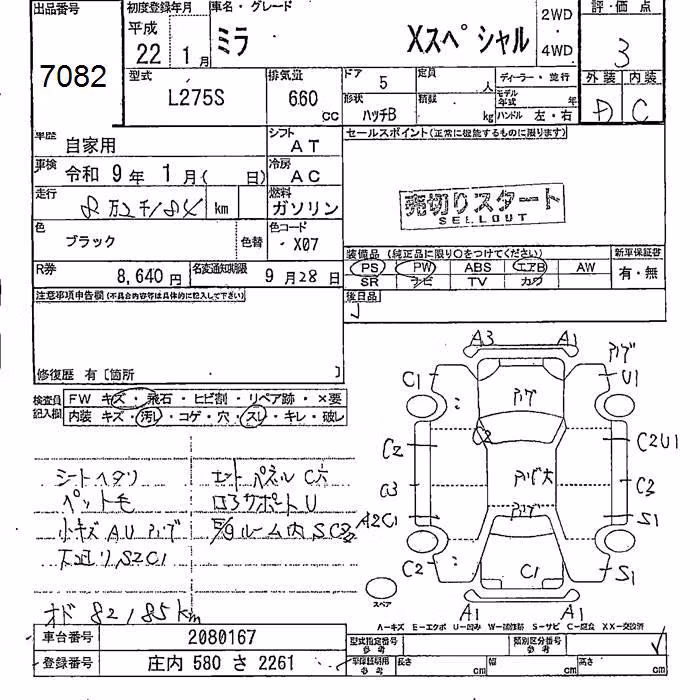 出品番号
7082
初度登録年月
平成
22 1月
車名・グレード
ミラ Xスペシャル
2WD
・
4WD
評・価点
3
外装 内装
D C
型式
L275S
排気量
660 cc
ドア 5
定員 人
形状 ハッチB
積載 kg
ディーラー・並行
モデル年式 年
ハンドル 左・右
車歴 自家用
シフト AT
車検 令和 9年 1月( 日)
冷房 AC
走行 km
燃料 ガソリン
色 ブラック 色替
色コード X07
R券 8,640円
名変通知期限 9月28日
セールスポイント(正常に機能するものに限ります)
売切りスタート
SELLOUT
装備品 (純正品に限り○をつけてください)
PS PW ABS エアB AW
SR ナビ TV カワ
新車保証書
有・無
後日品
注意事項申告欄(不具合内容等は具体的に記入して下さい)
修復歴 有 [箇所 ]
検査員記入欄
FW キズ・飛石・ヒビ割・リペア跡・×要
内装 キズ・汚レ・コゲ・穴・スレ・キレ・破レ
シートヘタリ
ペット毛
小キズAUアリゲ
下廻りS2C1
オド 82185km
A3 A1
アリゲ
C1 U1
アリゲ
C2
C2 C2U1
アリゲ大
C3 C3
アリゲ
A2C1 S1
C2 C1 S1
スペア
A1 A1
A-キズ E-エクボ U-凹み W-補修跡 S-サビ C-腐食 XX-交換済
車台番号 2080167
登録番号 庄内 580 さ 2261
型式指定番号 参考
類別区分番号 参考
車庫証明用 参考
長さ cm
幅 cm
高さ cm